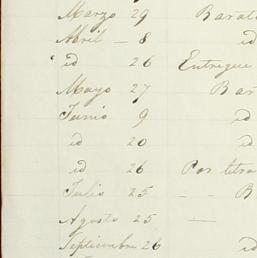 Marzo 29 Barat
Abril - 8 id
id 26 Entregue
Mayo 27 Bar
Junio 9 id
id 20 id
id 26 Por letra
Julio 25 - - B
Agosto 25 —
Septiembre 26 id